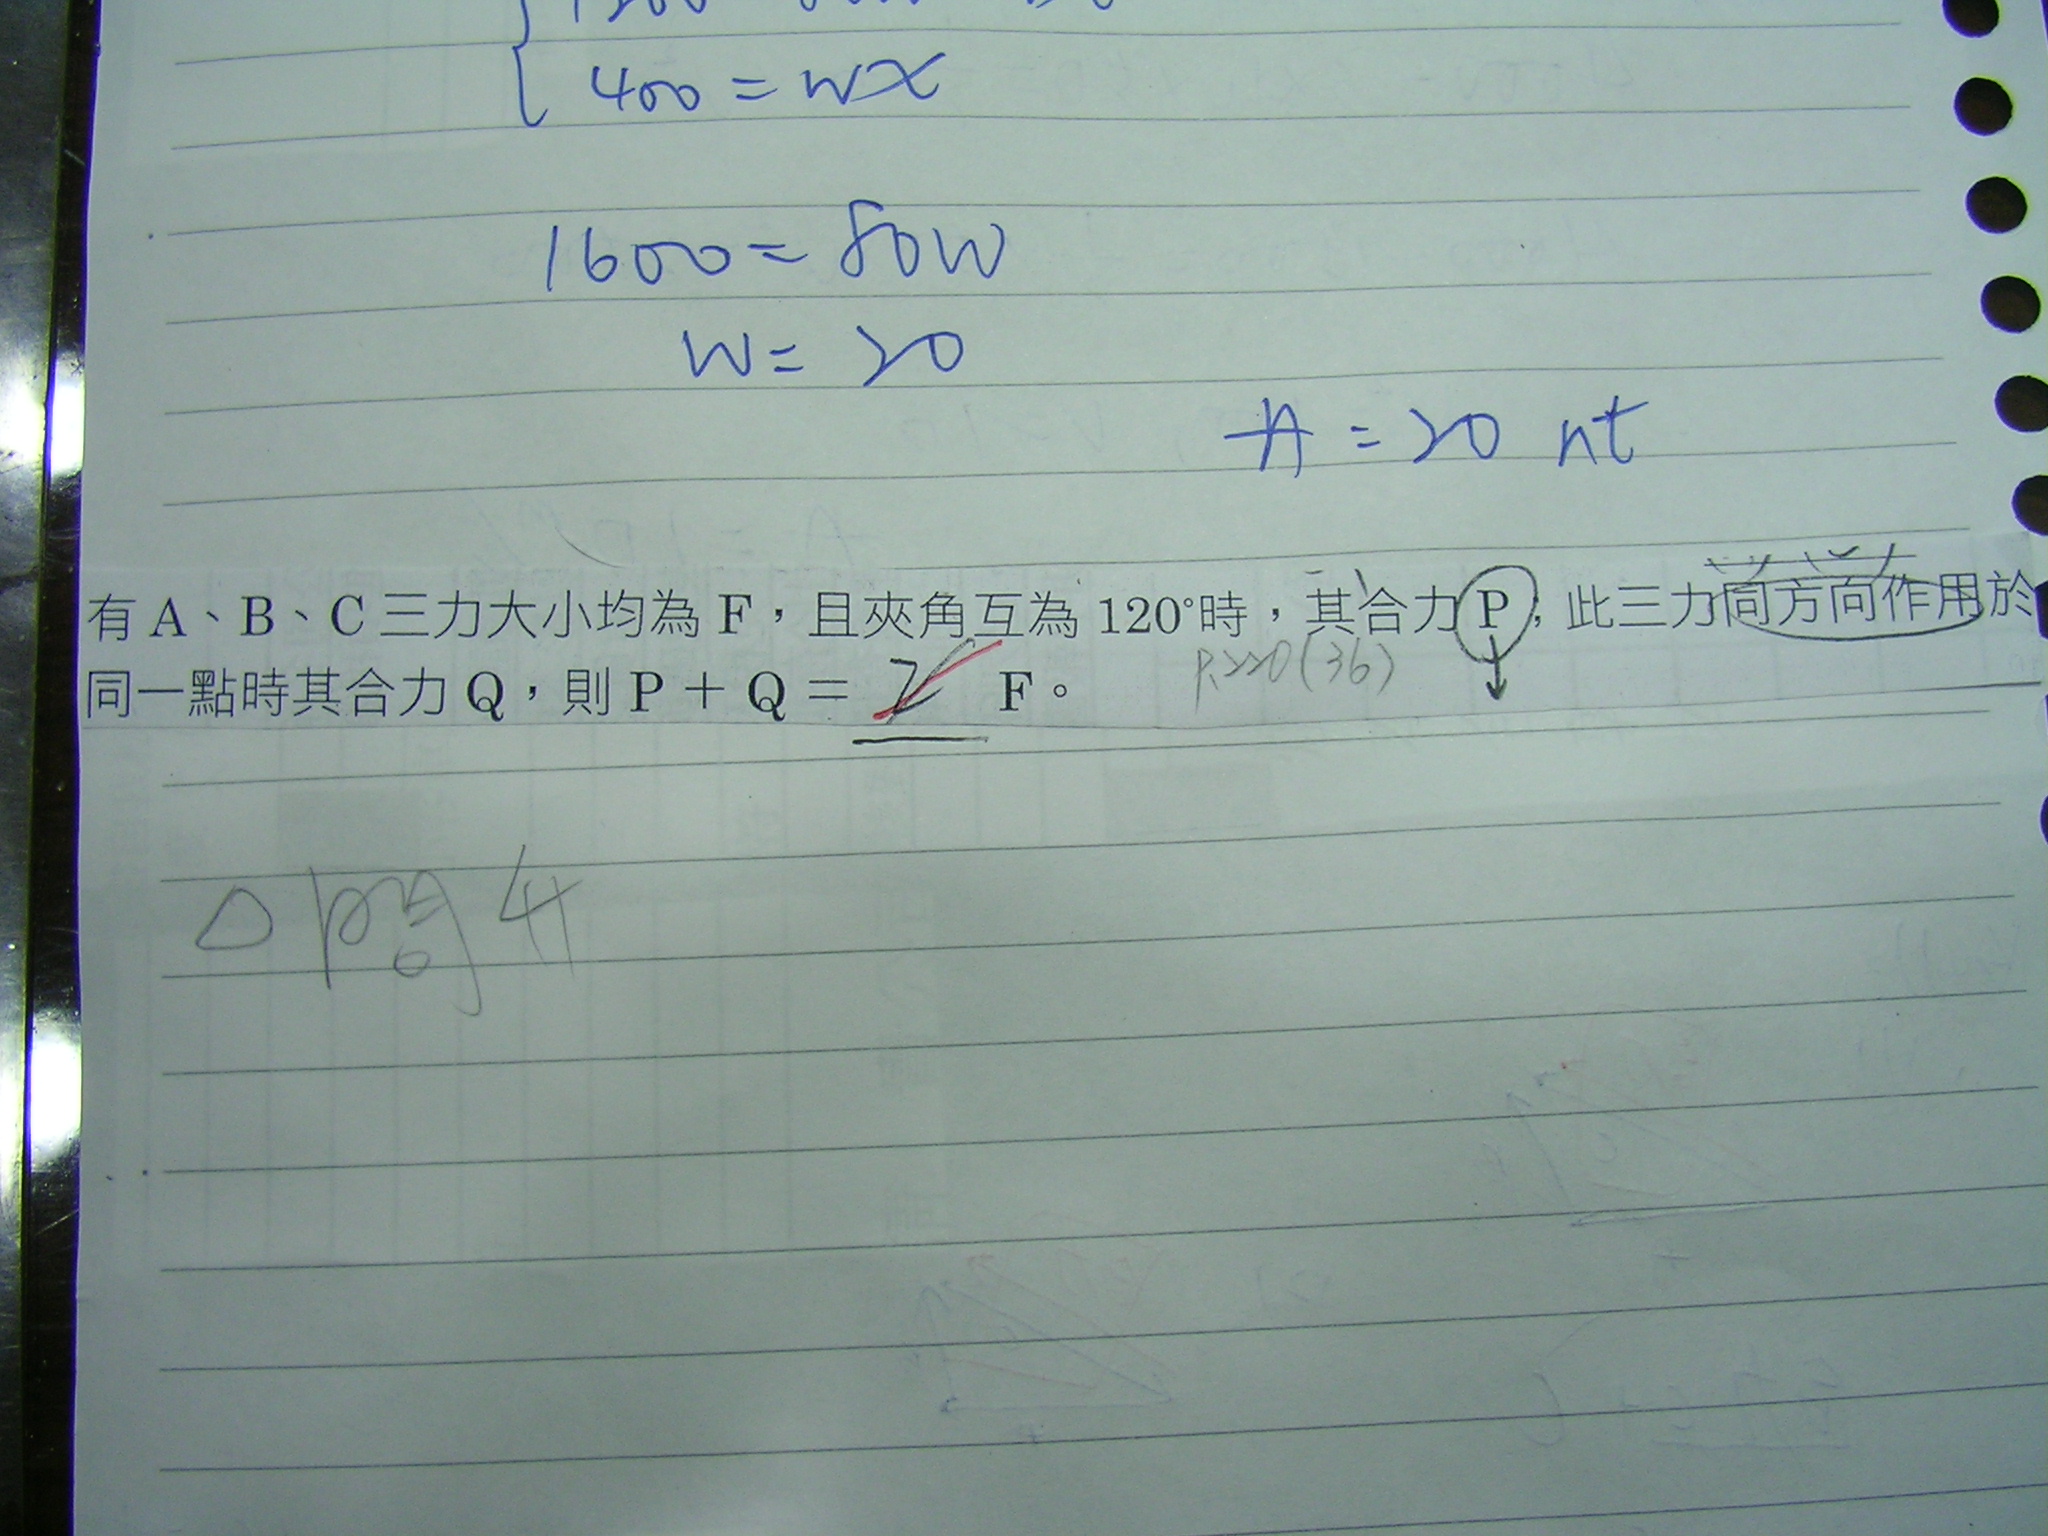 400 = wx
1600 = 80W
W = 20
A = 20 nt
有 A、B、C 三力大小均為 F，且夾角互為 120°時，其合力 P，此三力同方向作用於
同一點時其合力 Q，則 P + Q = 2 F。
P.220(36)